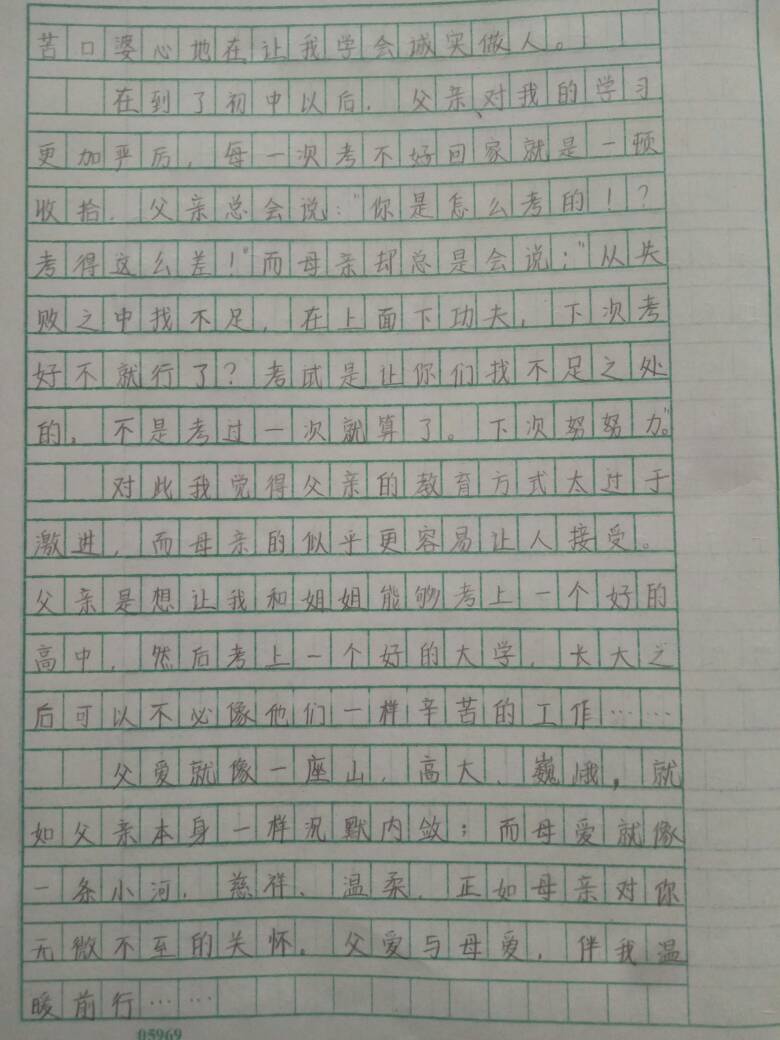 苦口婆心地在让我学会诚实做人。
在到了初中以后，父亲对我的学习
更加严厉，每一次考不好回家就是一顿
收拾，父亲总会说：“你是怎么考的！？
考得这么差！”而母亲却总是会说：“从失
败之中找不足，在上面下功夫，下次考
好不就行了？考试是让你们找不足之处
的，不是考过一次就算了。下次努努力。”
对此我觉得父亲的教育方式太过于
激进，而母亲的似乎更容易让人接受。
父亲是想让我和姐姐能够考上一个好的
高中，然后考上一个好的大学，长大之
后可以不必像他们一样辛苦的工作……
父爱就像一座山，高大、巍峨，就
如父亲本身一样沉默内敛；而母爱就像
一条小河，慈祥、温柔，正如母亲对你
无微不至的关怀。父爱与母爱，伴我温
暖前行……
05969